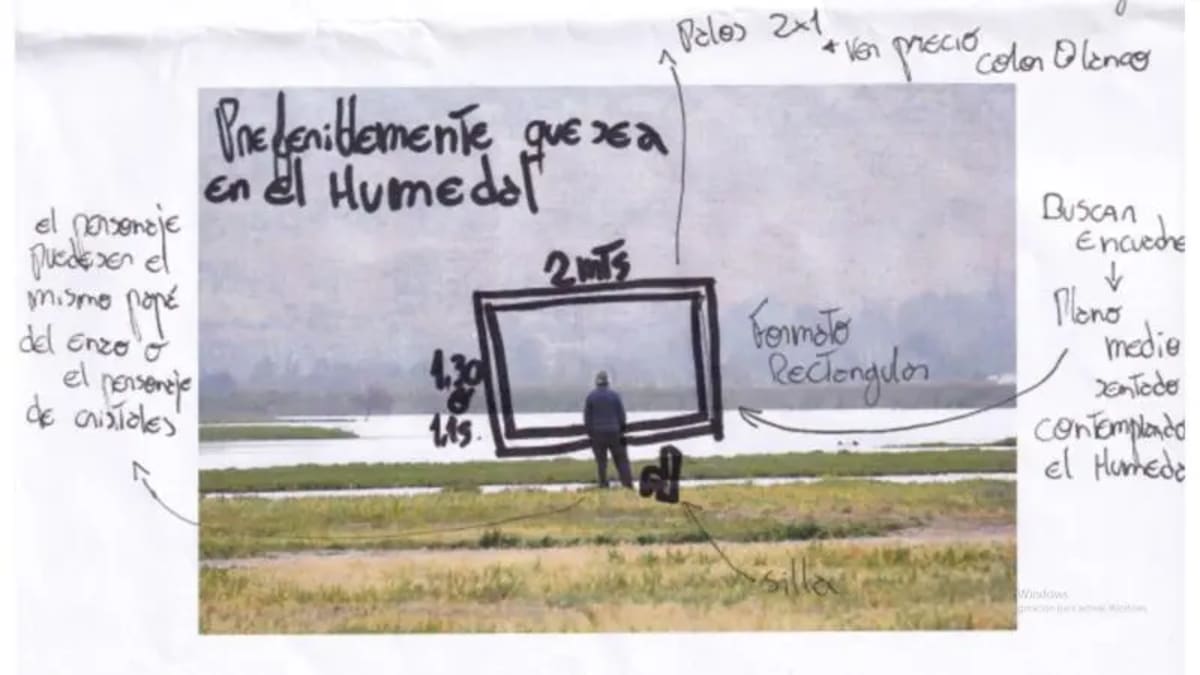 Palos 2x1
* Ver precio
color blanco
Preferiblemente que sea
en el Humedal
el personaje
puede ser el
mismo papá
del enzo o
el personaje
de cristales
2 mts
1,30
o
1,15.
Formato
Rectangular
Buscar
Encuadre
Plano
medio
sentado
contemplando
el Humeda
silla
Windows